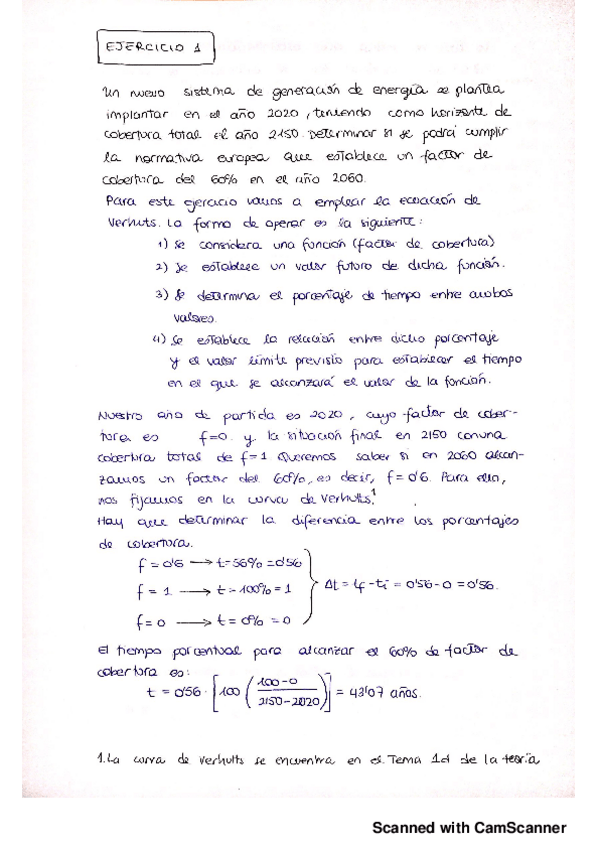 EJERCICIO 1
Un nuevo sistema de generación de energía se plantea
implantar en el año 2020, teniendo como horizonte de
cobertura total el año 2150. Determinar si se podrá cumplir
la normativa europea que establece un factor de
cobertura del 60% en el año 2060.
Para este ejercicio vamos a emplear la ecuación de
Verhuts. La forma de operar es la siguiente:
1) Se considera una función (factor de cobertura)
2) Se establece un valor futuro de dicha función.
3) Se determina el porcentaje de tiempo entre ambos
valores.
4) Se establece la relación entre dicho porcentaje
y el valor límite previsto para establecer el tiempo
en el que se alcanzará el valor de la función.
Nuestro año de partida es 2020, cuyo factor de cober-
tura es f=0. y la situación final en 2150 con una
cobertura total de f=1 Queremos saber si en 2060 alcan-
zamos un factor del 60%, es decir, f=0'6. Para ello,
nos fijamos en la curva de Verhults.¹
Hay que determinar la diferencia entre los porcentajes
de cobertura.
f = 0'6 → t=56% = 0'56
f = 1 → t = 100% = 1
f = 0 → t = 0% = 0
Δt = tf - ti = 0'56 - 0 = 0'56.
El tiempo porcentual para alcanzar el 60% de factor de
cobertura es:
t = 0'56 · [100 (100-0 / 2150-2020)] = 43'07 años.
1. La curva de Verhults se encuentra en el Tema 1d de la teoría
Scanned with CamScanner